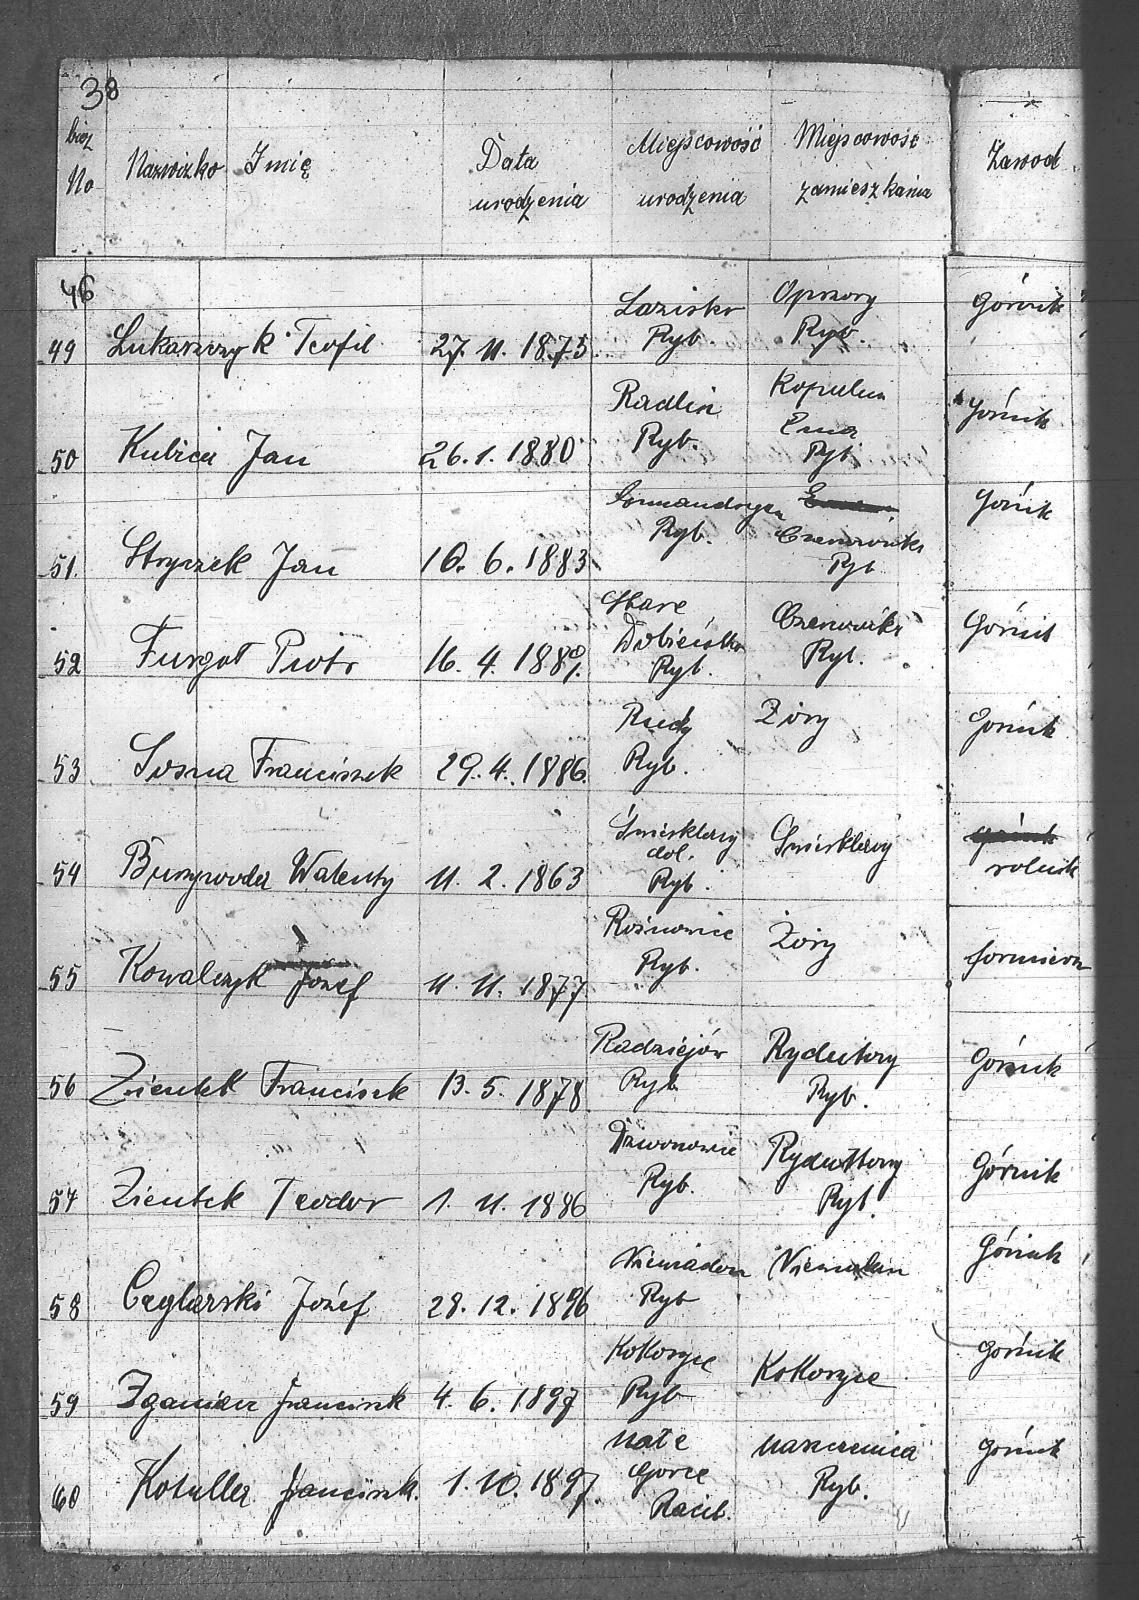 38
bież No Nazwizko Imię Data urodzenia Miejscowość urodzenia Miejscowość zamieszkania Zawod
46
49 Lukaszczyk Teofil 27. 11. 1875 Lazisko Ryb. Ryb. Górnik
50 Kubica Jan 26. 1. 1880 Radlin Ryb. Ryb Górnik
51. Stryczek Jan 10. 6. 1883 Ryb. Czerwionka Ryb Górnik
52 Furgoł Piotr 16. 4. 188 Stare Dubieńsko Ryb. Czerwionka Ryb. Górnik
53 Sosna Franciszek 29. 4. 1886. Ryb. Żory Górnik
54 Walenty 11. 2. 1863 dol. Ryb. rolnik
55 Kowalczyk Józef 11. 11. 1877 Ryb. Żory
56 Zientek Franciszek 13. 5. 1878 Radziejów Ryb Rydułtowy Ryb. Górnik
57 Zientek Teodor 1. 11. 1886 Dzwonowice Ryb. Rydułtowy Ryb. Górnik
58 Ceglarski Józef 28. 12. 1896 Niewiadom Ryb Niewiadom Górnik
59 Franciszek 4. 6. 1897 Kokoszyce Ryb Kokoszyce Górnik
60 Kotulla Franciszek. 1. 10. 1897. Małe Gorce Racib. Marszenica Ryb. Górnik